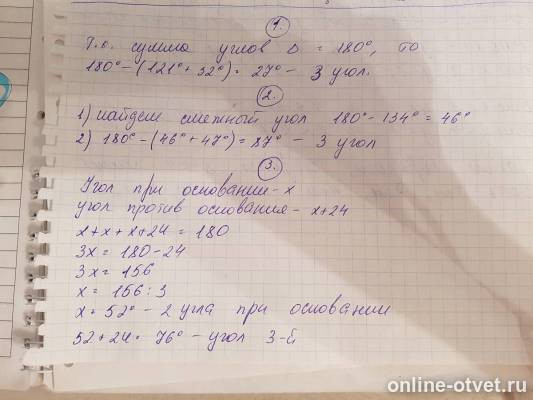 1.
Т.к. сумма углов Δ = 180°, то
180° - (121° + 32°) = 27° - 3 угол.
2.
1) найдем смежный угол 180° - 134° = 46°
2) 180° - (46° + 47°) = 87° - 3 угол
3.
Угол при основании - x
угол против основания - x+24
x + x + x+24 = 180
3x = 180 - 24
3x = 156
x = 156 : 3
x = 52° - 2 угла при основании
52 + 24 = 76° - угол 3-й
online-otvet.ru